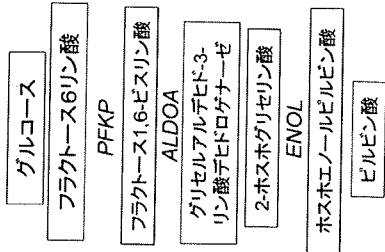 グルコース
フラクトース6リン酸
PFKP
フラクトース1,6-ビスリン酸
ALDOA
グリセルアルデヒド-3-
リン酸デヒドロゲナーゼ
2-ホスホグリセリン酸
ENOL
ホスホエノールピルビン酸
ピルビン酸